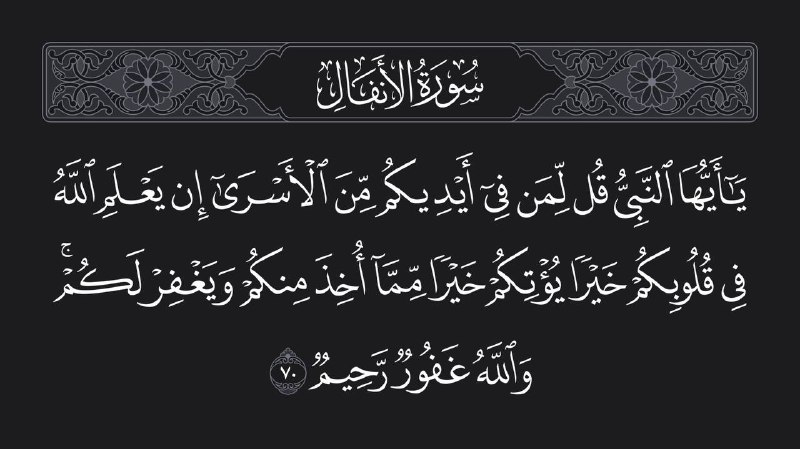 سُورَةُ الأَنفَالِ
يَـٰٓأَيُّهَا ٱلنَّبِىُّ قُل لِّمَن فِىٓ أَيْدِيكُم مِّنَ ٱلْأَسْرَىٰٓ إِن يَعْلَمِ ٱللَّهُ
فِى قُلُوبِكُمْ خَيْرًا يُؤْتِكُمْ خَيْرًا مِّمَّآ أُخِذَ مِنكُمْ وَيَغْفِرْ لَكُمْ ۚ
وَٱللَّهُ غَفُورٌ رَّحِيمٌ ٧٠